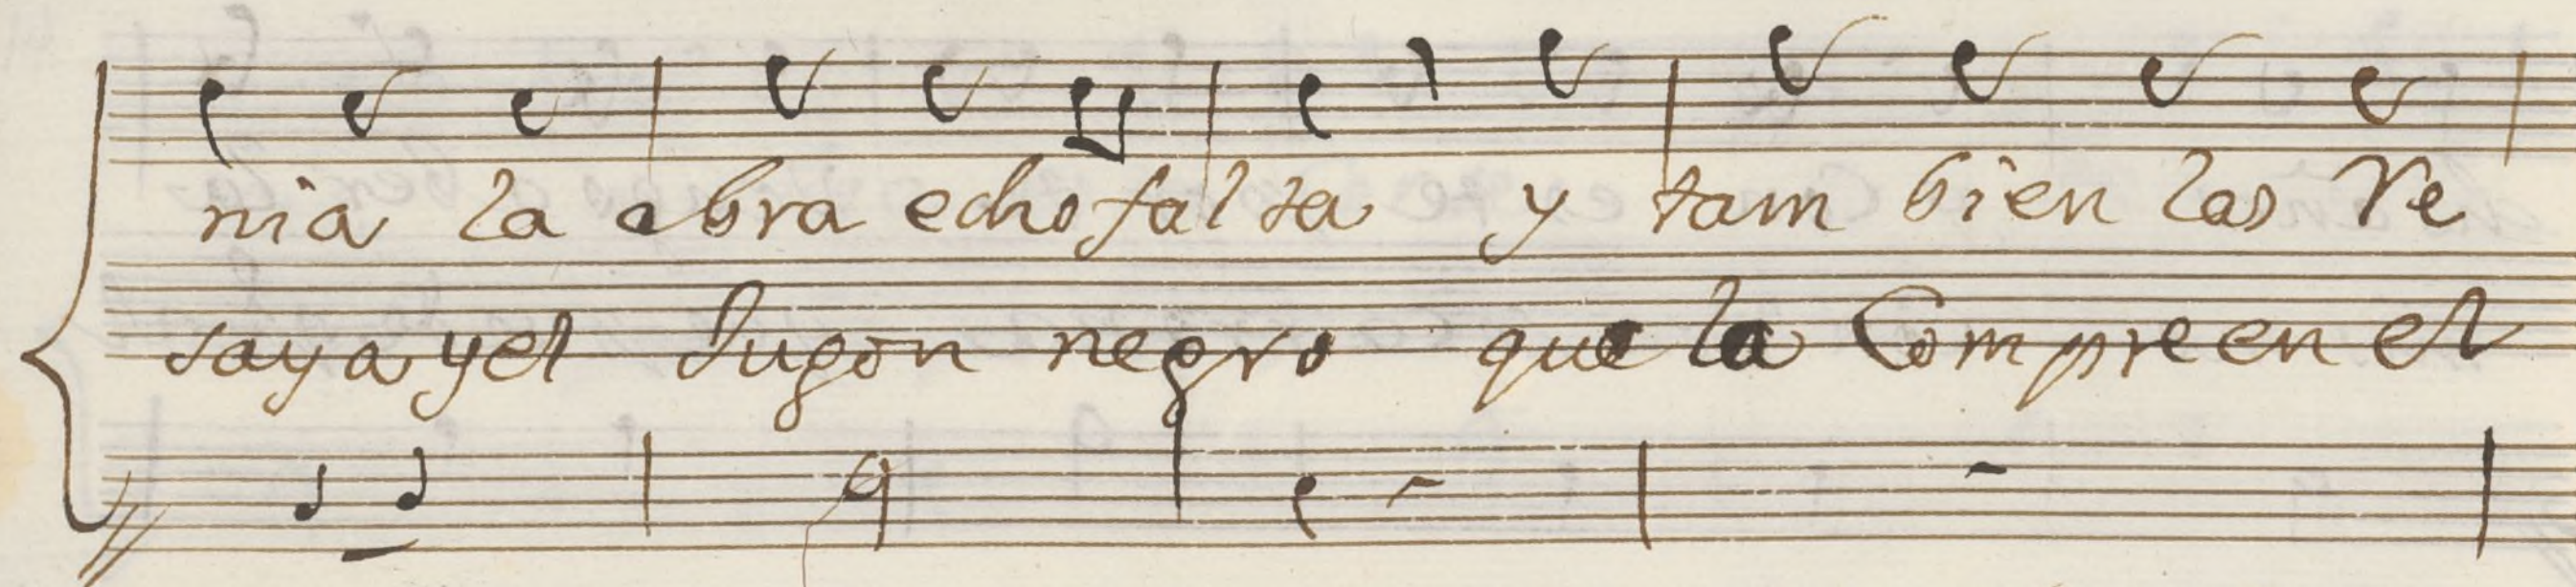 nia la abra echo falta y tam bien las Ve
saya y el Jugon negro que la Compre en el